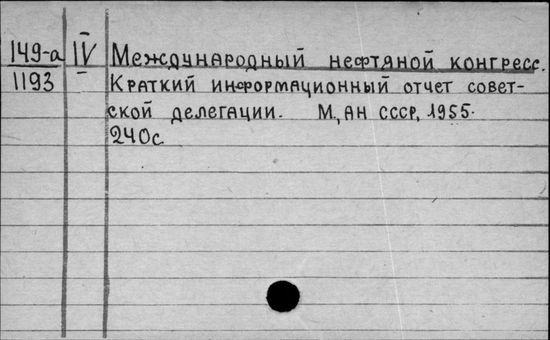 149-а IV Международный нефтяной конгресс.
1193 Краткий информационный отчет совет-
ской делегации. М., АН СССР, 1955.
240с.